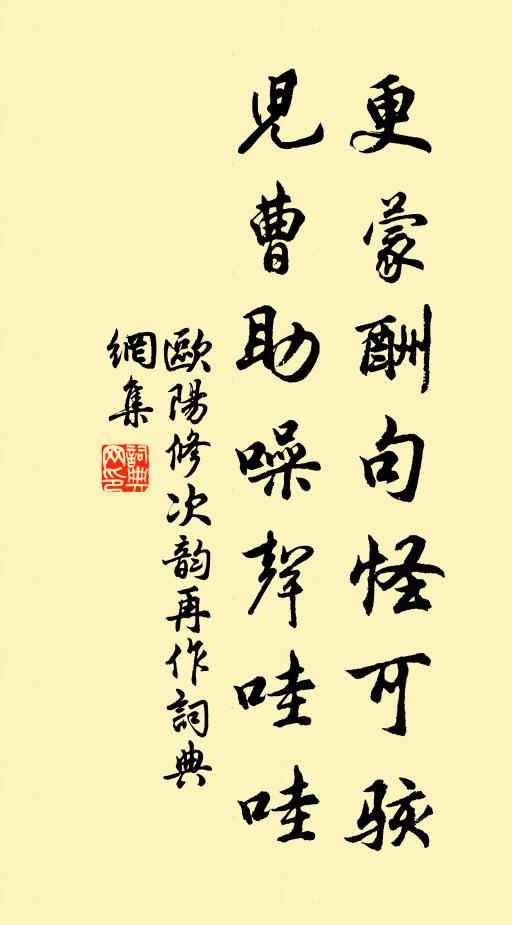 更蒙酬句怪可駭
兒曹助噪聲哇哇
歐陽修次韵再作詞典
網集
詞典網印